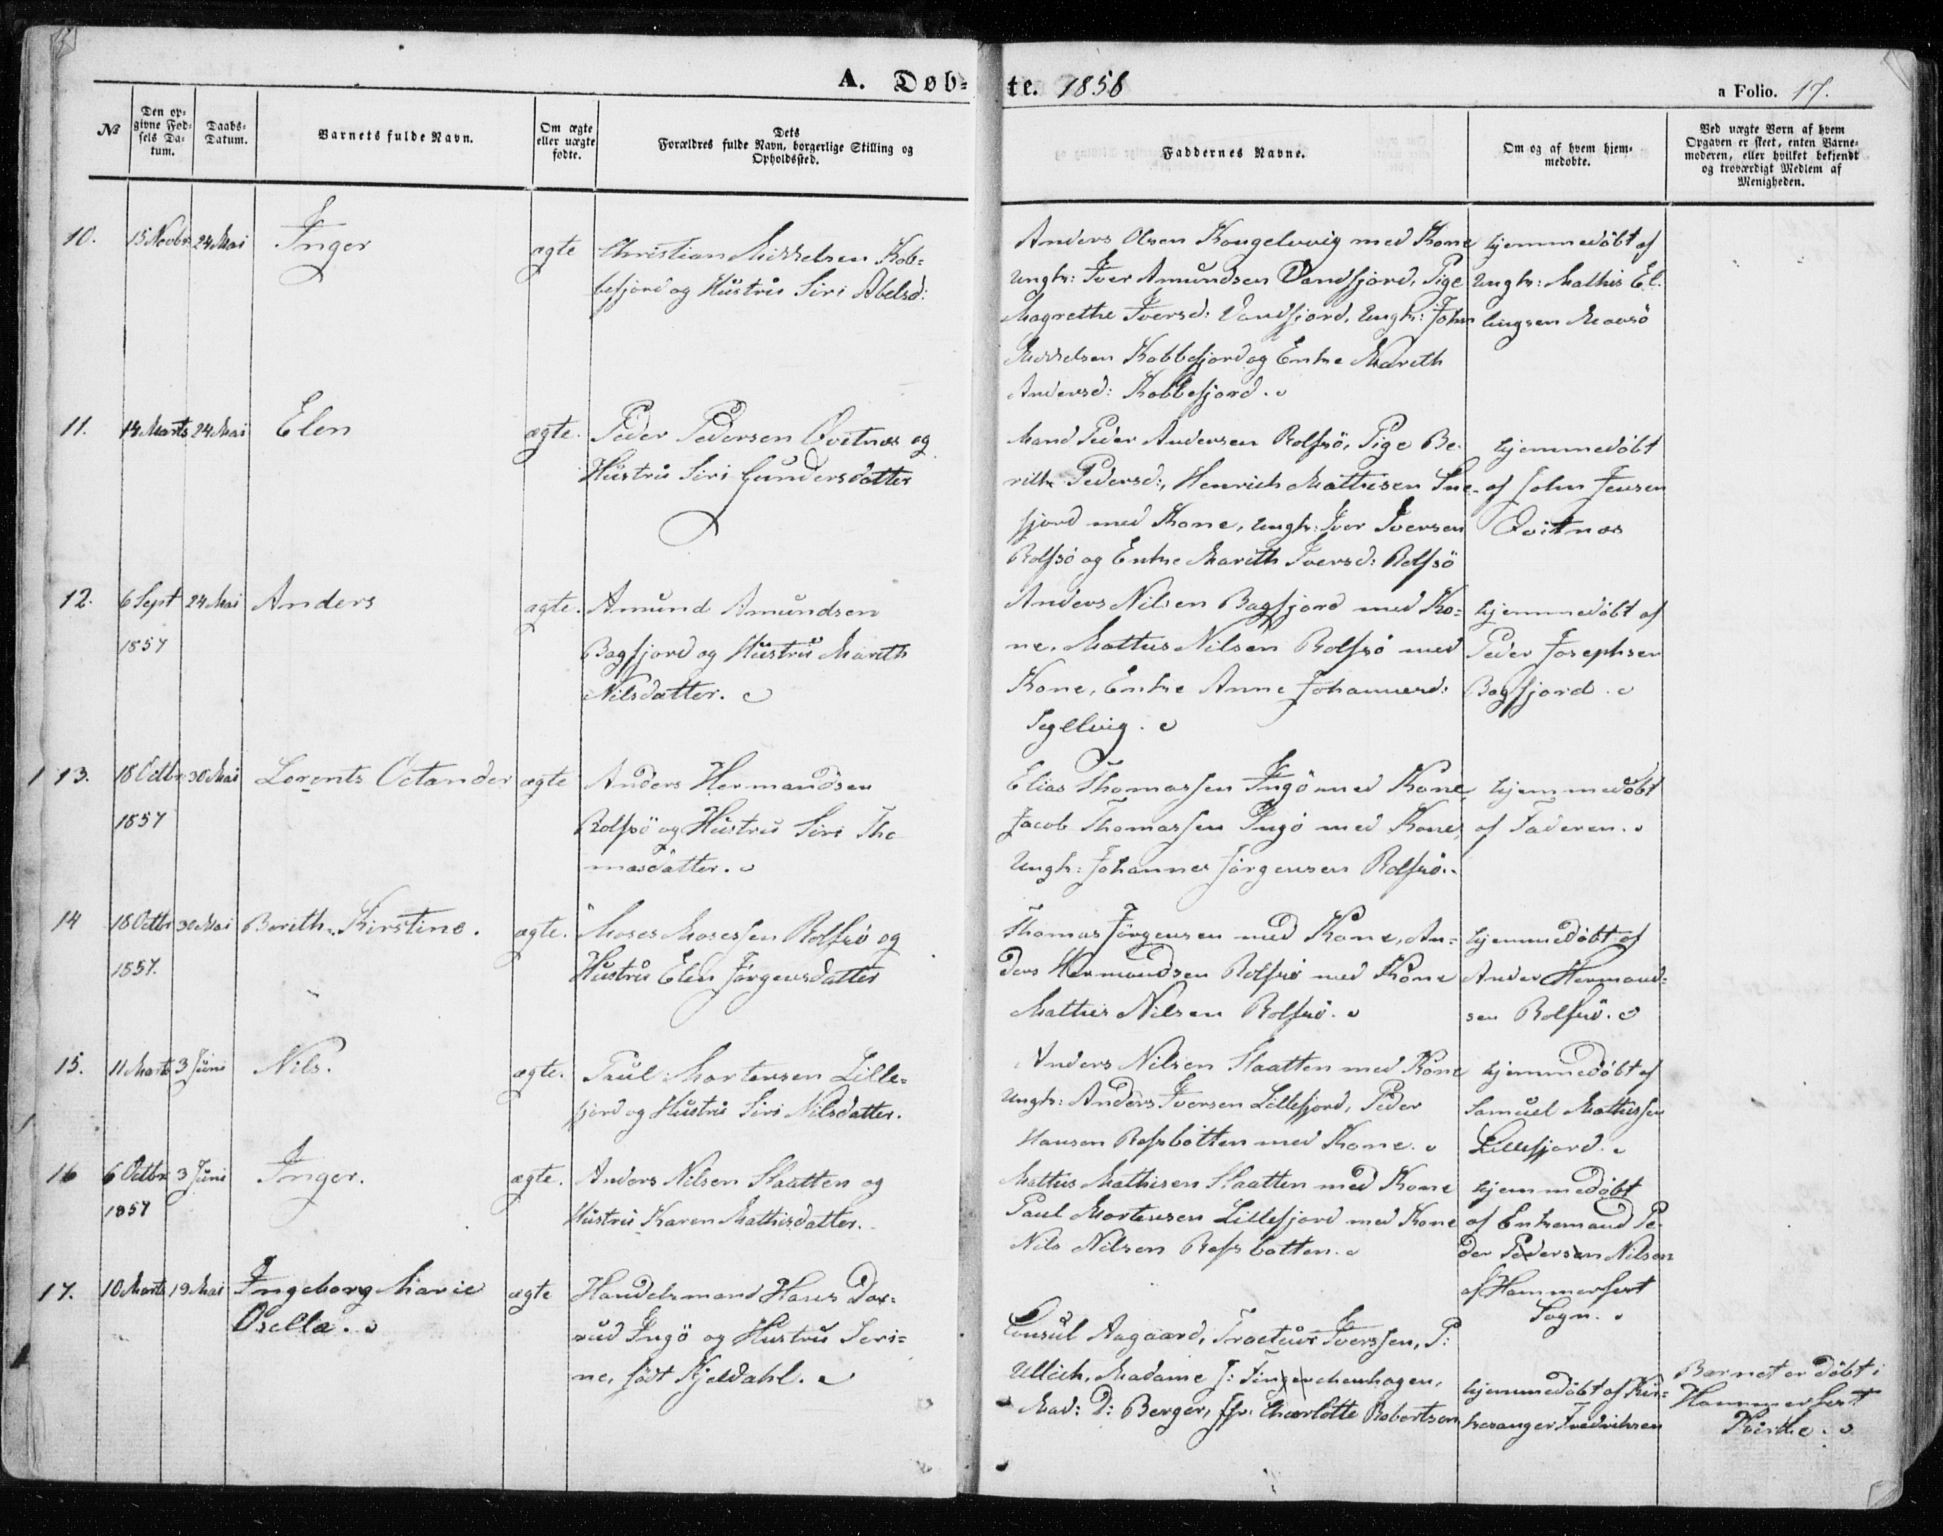 A. Døbte. 1858
a Folio. 17.
№
Den opgivne Fødsels Datum.
Daabs-Datum.
Barnets fulde Navn.
Om ægte eller uægte fødte.
Dets Forældres fulde Navn, borgerlige Stilling og Opholdssted.
Faddernes Navne.
Om og af hvem hjemmedøbte.
Ved uægte Børn af hvem Opgaven er skeet, enten Barnemoderen, eller hvilket bekjendt og troværdigt Medlem af Menigheden.
10. 15 Novbr 24 Mai Inger ægte
Christian Mikkelsen Kob-
befjord og Hustru Siri Abelsd:
Anders Olsen Kongelvvig med Kone
Ungk: Iver Amundsen Vandfjord, Pige
Magrethe Iversd: Vandfjord, Ungk: John
Mikkelsen Kobbefjord og Enke Mareth
Andersd: Kobbefjord.
hjemmedøbt af
Ungk: Mathis El-
lingsen Maasö
11. 14 Marts 24 Mai Elen ægte.
Peder Pedersen Qvitnæs og
Hustru Siri Gundersdatter
Mand Peder Andersen Rolfsö, Pige Be-
rith Pedersd:, Henrich Mathisen Sne-
fjord med Kone, Ungk: Iver Iversen
Rolfsö og Enke Marith Iversd: Rolfsö
hjemmedøbt
af John Jensen
Qvitnæs
12. 6 Sept 24 Mai Anders ægte.
1857
Amund Amundsen
Bagfjord og Hustru Marith
Nilsdatter.
Anders Nilsen Bagfjord med Ko-
ne, Mathis Nilsen Rolfsö med
Kone, Enke Anne Johannesd:
hjemmedøbt af
Peder Josephsen
Bagfjord.
13. 18 Octbr 30 Mai Lorents Octander ægte
1857
Anders Hermandsen
Rolfsö og Hustru Siri Tho-
masdatter.
Elias Thomassen Ingö med Kone,
Jacob Thomassen Ingö med Kone,
Ungk: Johannes Jörgensen Rolfsö.
hjemmedöbt
af Faderen.
14 18 Octbr 30 Mai Berith Kirstine. ægte.
1857.
Moses Mosessen Rolfsö og
Hustru Elen Jörgensdatter
Thomas Jörgensen med Kone, An-
ders Hermandsen Rolfsö med Kone
Mathis Nilsen Rolfsö.
hjemmedøbt af
Anders Hermand-
sen Rolfsö.
15. 11 Marts 3 Juni Nils. ægte.
Paul Mortensen Lille-
fjord og Hustru Siri Nilsdatter.
Anders Nilsen Slaatten med Kone
Ungk: Anders Iversen Lillefjord, Peder
Hansen Refsbotten med Kone.
hjemmedøbt af
Samuel Mathissen
Lillefjord.
16 6 Octbr 3 Juni Inger. ægte.
1857
Anders Nilsen Slaatten og
Hustru Karen Mathisdatter.
Mathis Mathisen Slaatten med Kone
Paul Mortensen Lillefjord med Kone
Nils Nilsen Refsbotten.
hjemmedøbt
af Enkemand Pe-
der Pedersen Nilsen
af Hammerfest
Sogn.
17. 10 Marts 19 Mai Ingeborg Marie ægte
Osella.
Handelsmand Hans Dax-
rud Ingö og Hustru Seri-
ne, født Kjeldahl.
Consul Aagaard, Iverssen, P:
Ullich, Madame J:
Mad: D: Berger, Charlotte Robertson
hjemmedøbt af Kir-
kesanger Fredriksen
Barnet er døbt i
Hammerfest
Kirke.